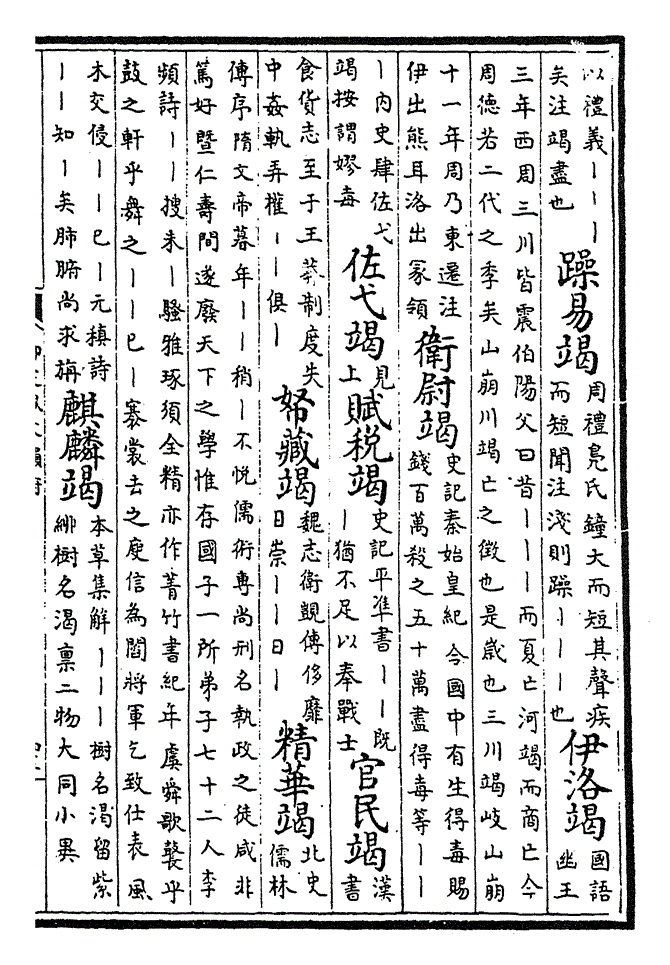 以禮義｜｜｜
矣注竭盡也
躁易竭
周禮鳧氏鐘大而短其聲疾
而短聞注淺則躁｜｜｜也
伊洛竭
國語
幽王
三年西周三川皆震伯陽父曰昔｜｜｜而夏亡河竭而商亡今
周德若二代之季矣山崩川竭亡之徵也是歲也三川竭岐山崩
十一年周乃東遷注
伊出熊耳洛出冡領
衛尉竭
史記秦始皇紀令國中有生得毒賜
錢百萬殺之五十萬盡得毒等｜｜
｜內史肆佐弋
竭按謂嫪毒
佐弋竭
見
上
賦稅竭
史記平準書｜｜既
｜猶不足以奉戰士
官民竭
漢
書
食貨志至于王莽制度失
中姦軌弄權｜｜俱｜
帑藏竭
魏志衛覬傳侈靡
日崇｜｜日｜
精華竭
北史
儒林
傳序隋文帝暮年｜｜稍｜不悅儒術專尚刑名執政之徒咸非
篤好暨仁壽間遂廢天下之學惟存國子一所弟子七十二人李
頻詩｜｜搜未｜騷雅琢須全精亦作菁竹書紀年虞舜歌鼚乎
鼓之軒乎舞之｜｜已｜褰裳去之庾信為閻將軍乞致仕表風
木交侵｜｜已｜元稹詩
｜｜知｜矣肺腑尚求旃
麒麟竭
本草集解｜｜｜樹名渴留紫
緋樹名渴稟二物大同小異